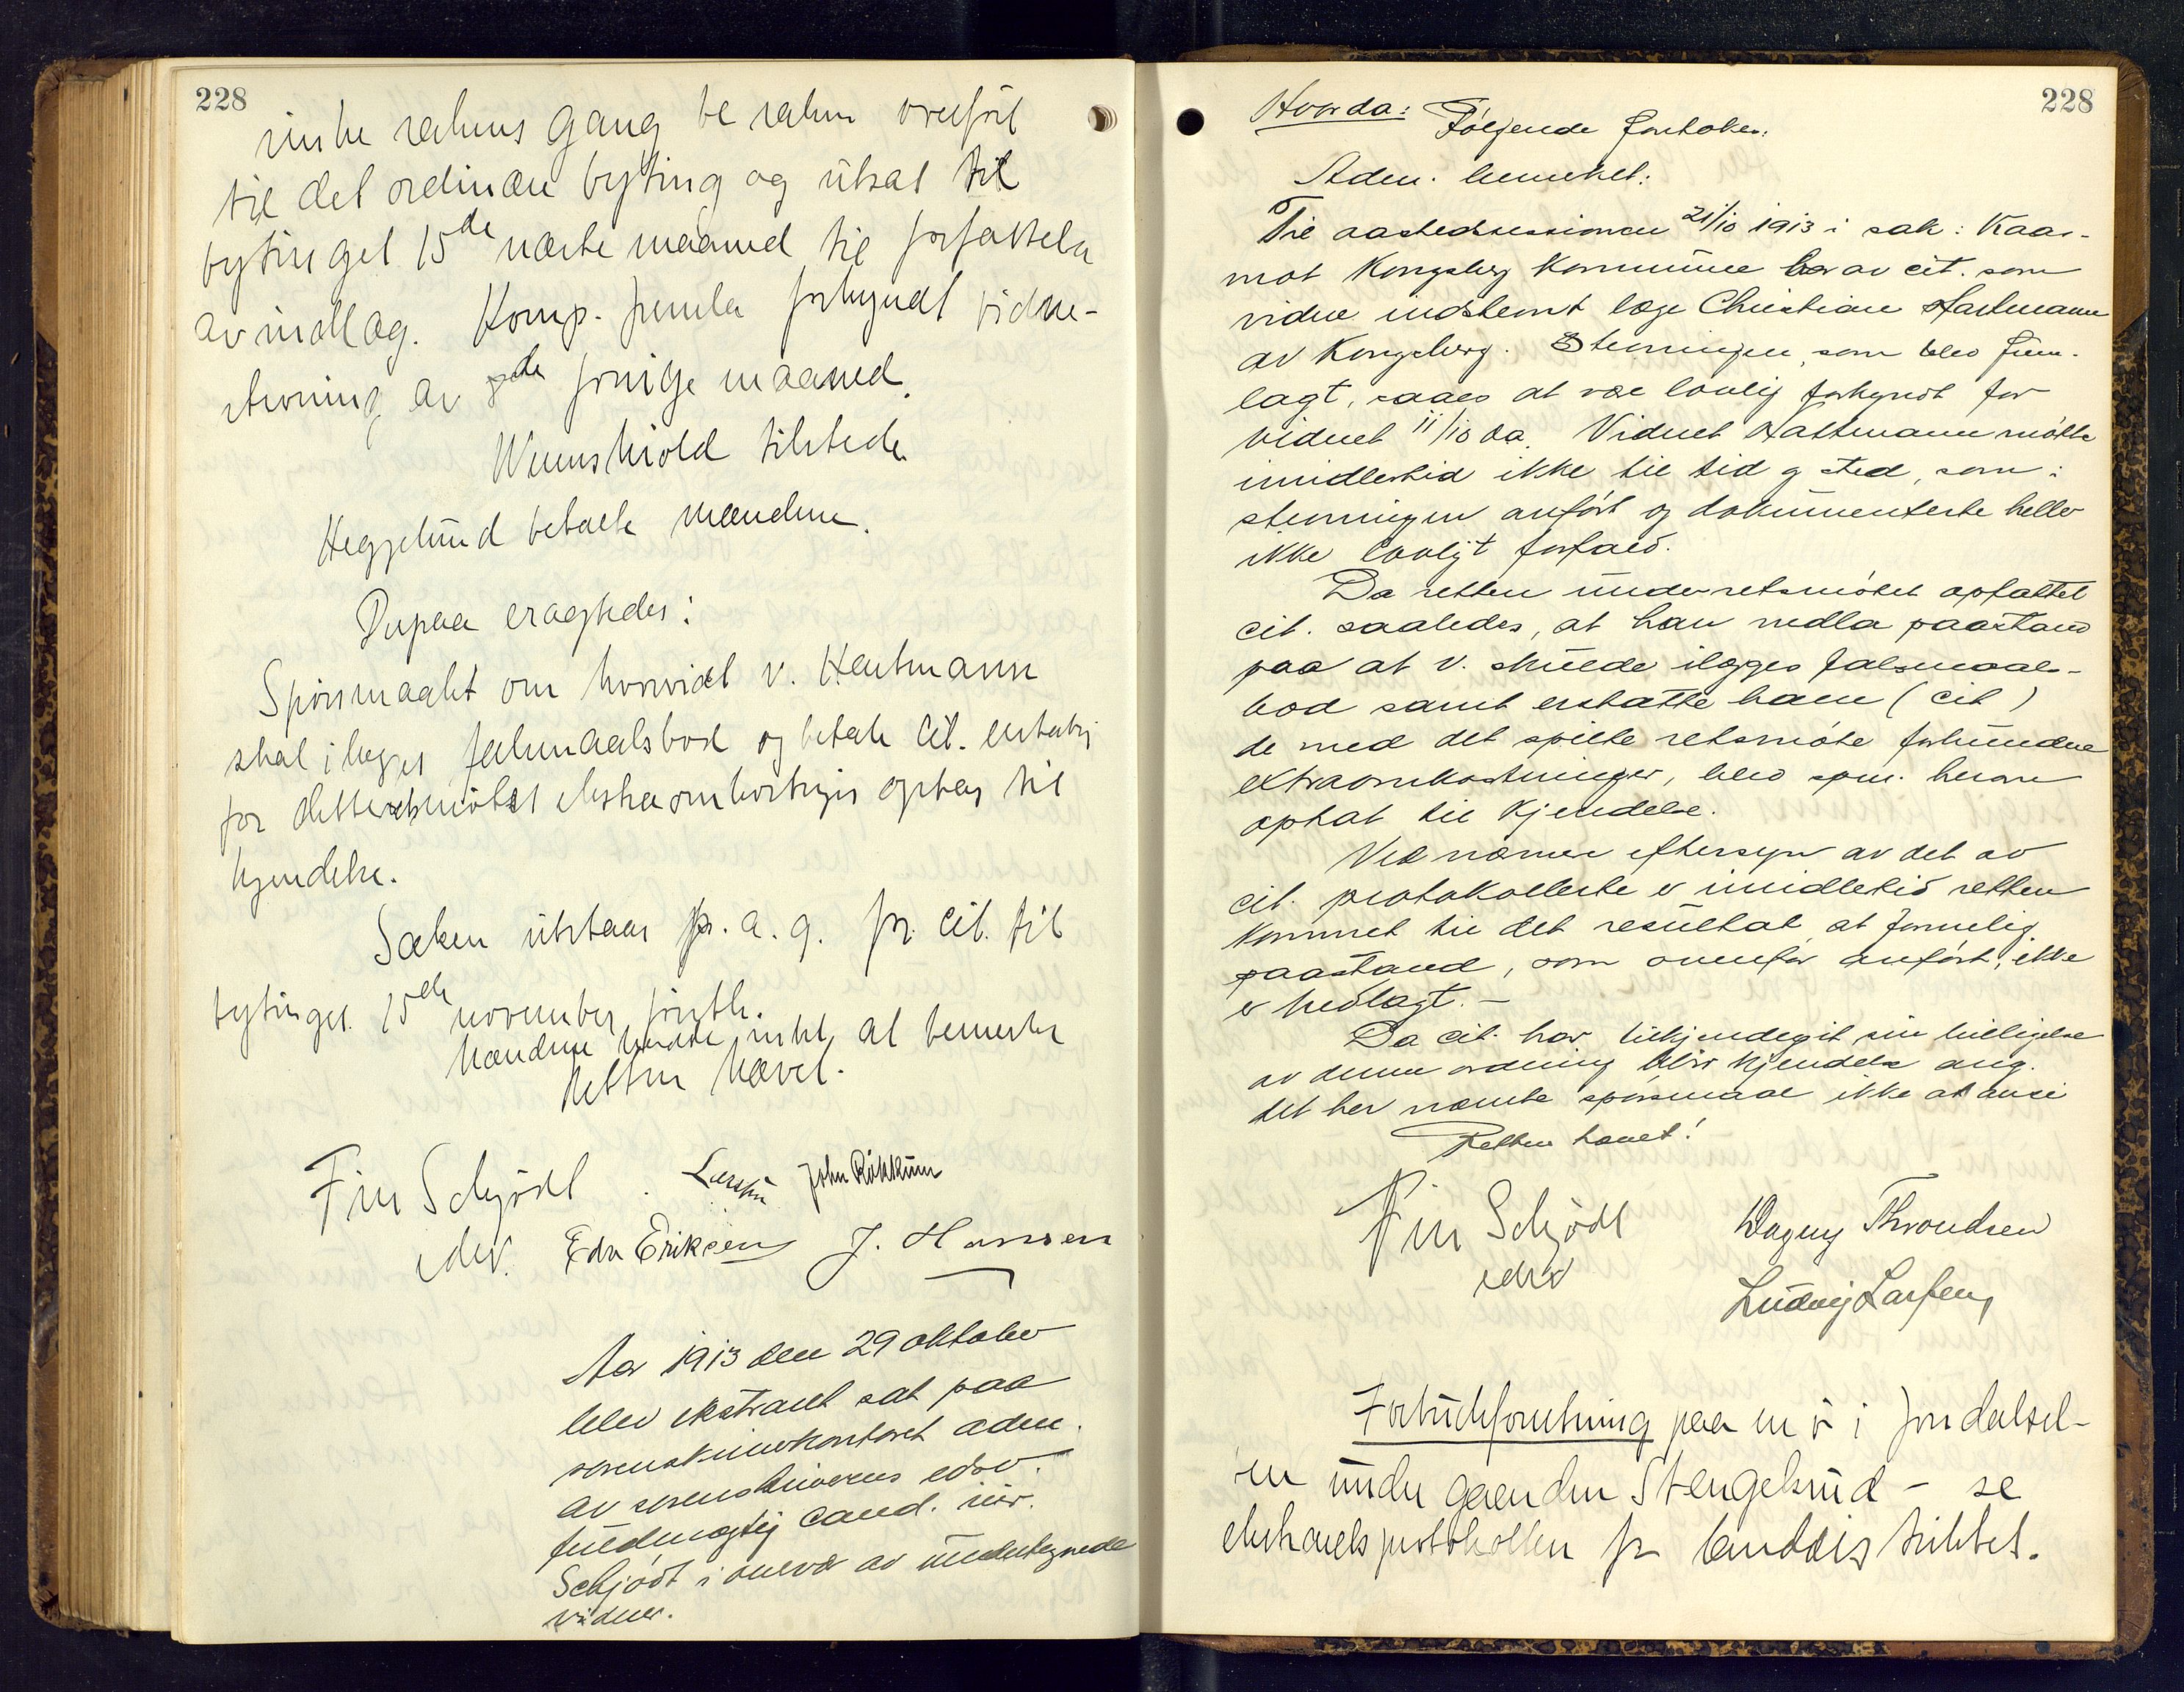 228
rette sakens gang be saken overført
til det ordinære byting og utsat til
bytinget 15de næste maaned til forfattelse
av indlæg. Komp. fremla forkyndt vidne-
stevning av de forrige maaned.
Wennskiold tilstede.
Heggelund betalte mændene.
Derpaa eragtedes:
Spørsmaalet om hvorvidt v. Hartmann
skal ilægges falsmaalsbod og betale cit. erstatn.
for dette retsmøtes ekstraomkostninger optas til
kjendelse.
Saken utstaar p. a. g. fr. cit. til
bytinget 15de november førstk.
Mændene hadde intet at bemerke
Retten hævet.
Fin Schjødt Larsen John Røkkum
edsv. Edv Eriksen J. Hansen
Aar 1913 den 29 oktober
blev ekstraret sat paa
sorenskriverkontoret adm.
av sorenskriverens edsv.
fuldmægtig cand. jur.
Schjødt i overvær av undertegnede
vidner.
228
Hvorda: Følgende foretokes:
Adm. bemerket:
Til aastedssessionen 21/10 1913 i sak: Kaas-
mot Kongsberg kommune var av cit. som
vidne indstevnt læge Christian Hartmann
av Kongsberg. Stevningen, som blev frem-
lagt, saaes at være lovlig forkyndt for
vidnet 11/10 da. Vidnet Hartmann møtte
imidlertid ikke til tid og sted, som i
stevningen anført og dokumenterte heller
ikke lovligt forfald.
Da retten under retsmøtet opfattet
cit. saaledes, at han nedla paastand
paa at v. skulde ilægges falsmaals-
bod samt erstatte ham (cit)
de med det spilte retsmøte forbundne
extraomkostninger, blev spm. herom
optat til kjendelse.
Ved nærmere eftersyn av det av
cit. protokollerte er imidlertid retten
kommet til det resultat at formelig
paastand, som ovenfor anført, ikke
er nedlagt. –
Da cit. har tilkjendegit sin billigelse
av denne ordning blir kjendelse ang.
det her nævnte spørsmaal ikke at avsi
Retten hævet!
Fin Schjødt Dagny Throndsen
edsv Ludvig Larsen
Forbudsforretning paa en ø i Jondalsel-
ven under gaarden Stengelsrud – se
ekstraretsprotokollen for landdistriktet.